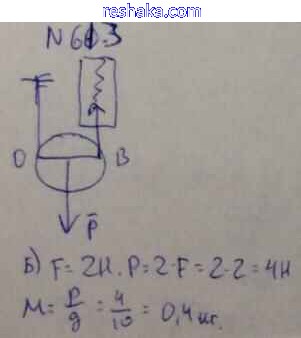 reshaka.com
N 61.3
O B
P̄
Б) F = 2Н. P = 2·F = 2·2 = 4Н
M = P/g = 4/10 = 0,4 кг.